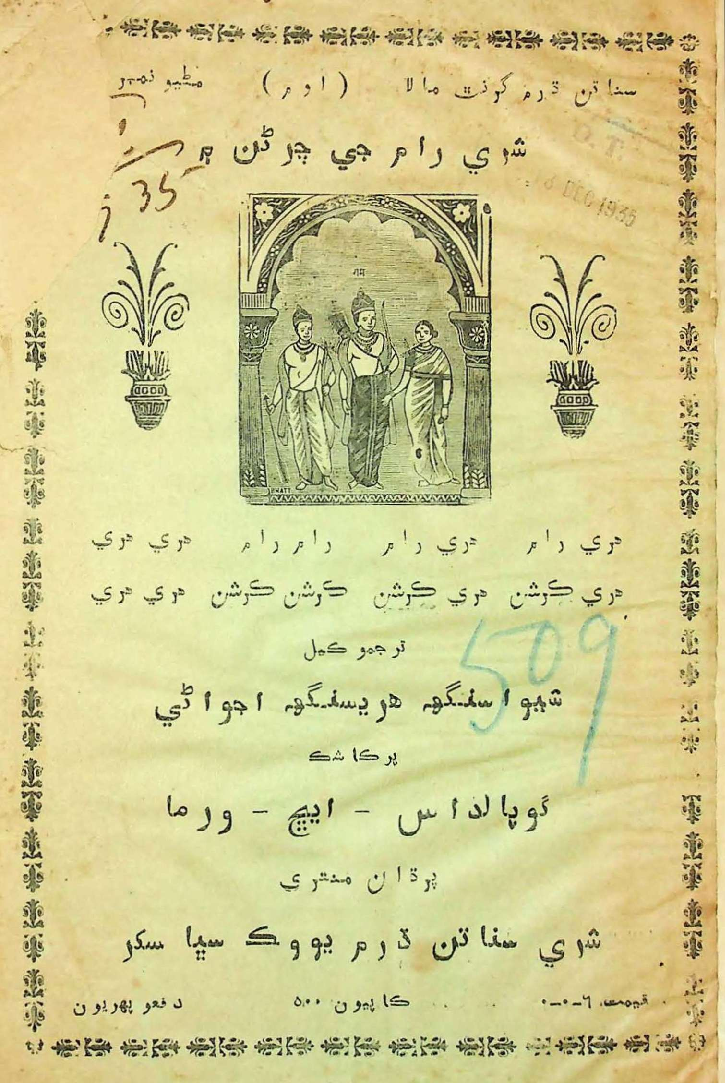 سناتن ڌرم گرنٿ مالا ( اوم ) مڻيو نمبر
شري رام جي چرڻن ۾
DEC 1935
j 35
राम
BHATT
هري رام هري رام رام رام هري هري
هري ڪرشن هري ڪرشن ڪرشن ڪرشن هري هري
ترجمو ڪيل
509
شيواسنگهہ هريسنگهہ اجواڻي
پرڪاشڪ
گوپالداس - ايڇ - ورما
پرڌان منتري
شري سناتن ڌرم يووڪ سڀا سکر
قيمت ٦-٠-٠ ڪاپيون ٥٠٠ دفعو پهريون